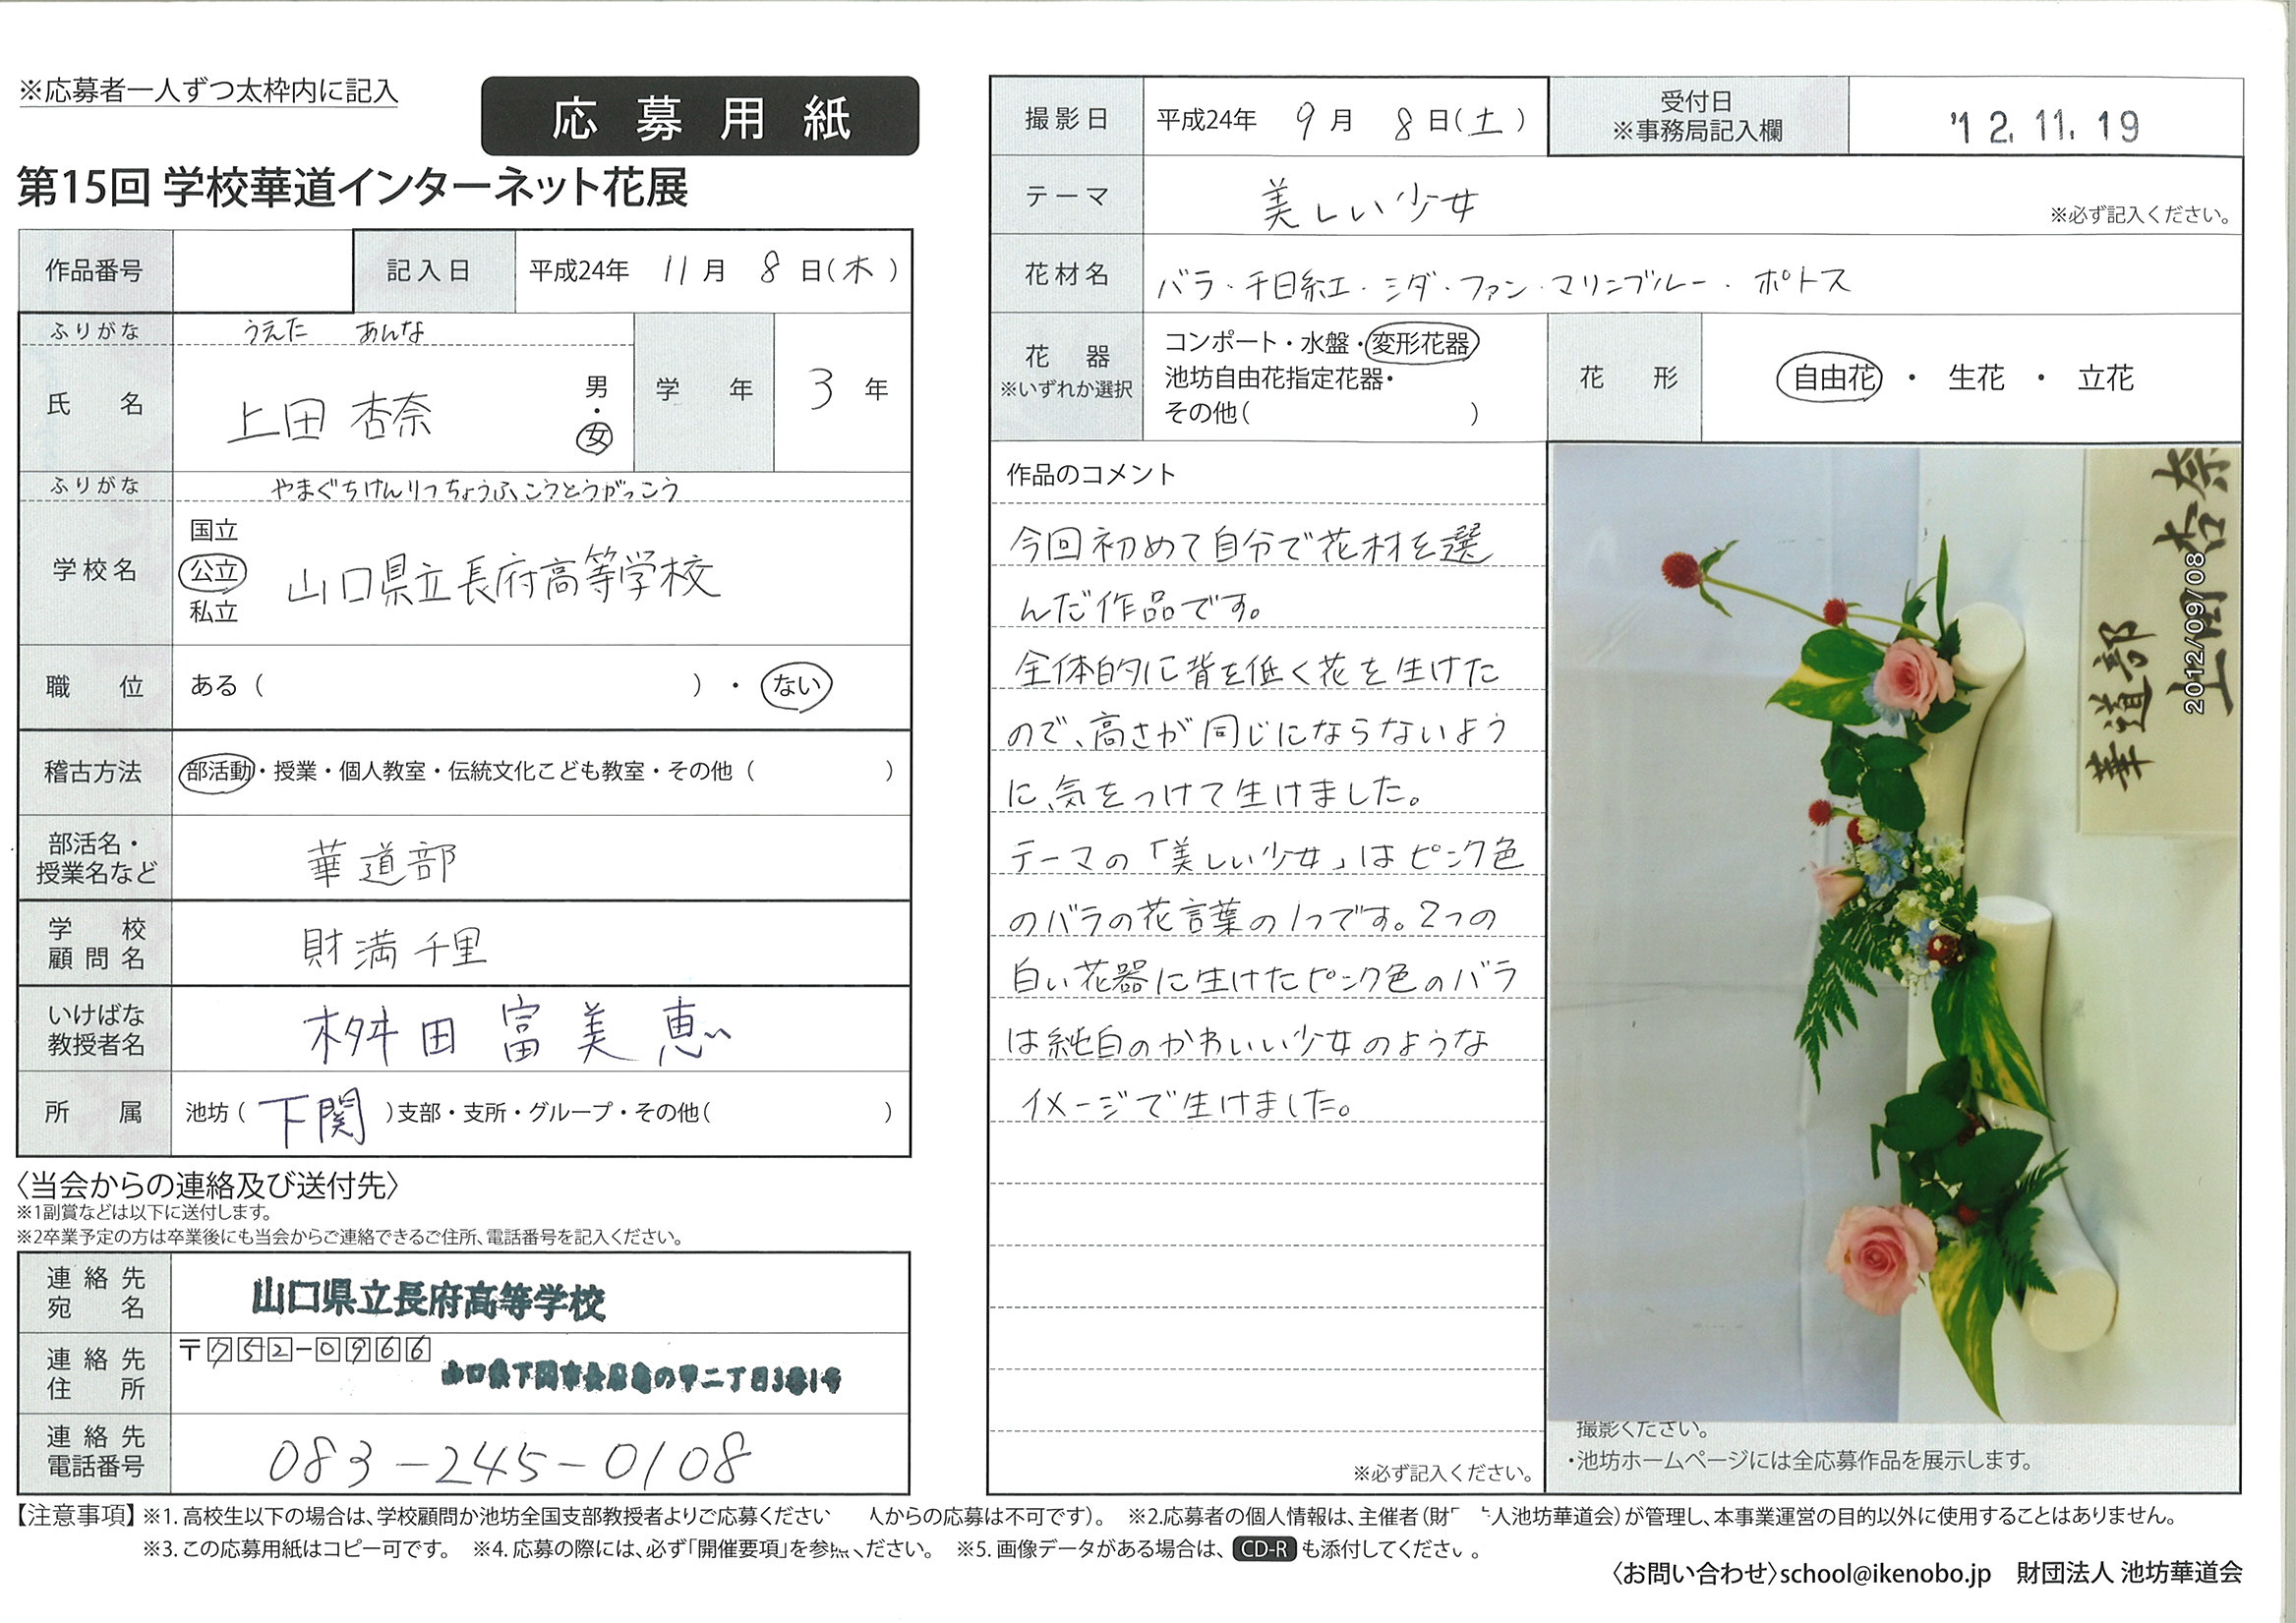 ※応募者一人ずつ太枠内に記入
応募用紙
第15回 学校華道インターネット花展
作品番号
記入日 平成24年 11月 8日(木)
ふりがな うえた あんな
氏名 上田 杏奈 男・女
学年 3年
ふりがな やまぐちけんりっちょうふこうとうがっこう
学校名 国立 公立 私立 山口県立長府高等学校
職位 ある( )・ない
稽古方法 部活動・授業・個人教室・伝統文化こども教室・その他( )
部活名・授業名など 華道部
学校顧問名 財満千里
いけばな教授者名 桝田富美恵
所属 池坊(下関)支部・支所・グループ・その他( )
〈当会からの連絡及び送付先〉
※1副賞などは以下に送付します。
※2卒業予定の方は卒業後にも当会からご連絡できるご住所、電話番号を記入ください。
連絡先宛名 山口県立長府高等学校
連絡先住所 〒752-0966
山口県下関市長府亀の甲二丁目3番1号
連絡先電話番号 083-245-0108
撮影日 平成24年 9月 8日(土)
受付日 ※事務局記入欄 '12.11.19
テーマ 美しい少女 ※必ず記入ください。
花材名 バラ・千日紅・シダ・ファン・マリンブルー・ポトス
花器 ※いずれか選択
コンポート・水盤・変形花器
池坊自由花指定花器・
その他( )
花形 自由花・生花・立花
作品のコメント
今回初めて自分で花材を選
んだ作品です。
全体的に背を低く花を生けた
ので、高さが同じにならないよう
に、気をつけて生けました。
テーマの「美しい少女」はピンク色
のバラの花言葉の1つです。2つの
白い花器に生けたピンク色のバラ
は純白のかわいい少女のような
イメージで生けました。
※必ず記入ください。
華道部
上田杏奈
2012/09/08
撮影ください。
・池坊ホームページには全応募作品を展示します。
【注意事項】※1.高校生以下の場合は、学校顧問か池坊全国支部教授者よりご応募ください 人からの応募は不可です)。 ※2.応募者の個人情報は、主催者(財 人池坊華道会)が管理し、本事業運営の目的以外に使用することはありません。
※3.この応募用紙はコピー可です。 ※4.応募の際には、必ず「開催要項」を参照ください。 ※5.画像データがある場合は、CD-Rも添付してください。
〈お問い合わせ〉school@ikenobo.jp 財団法人 池坊華道会